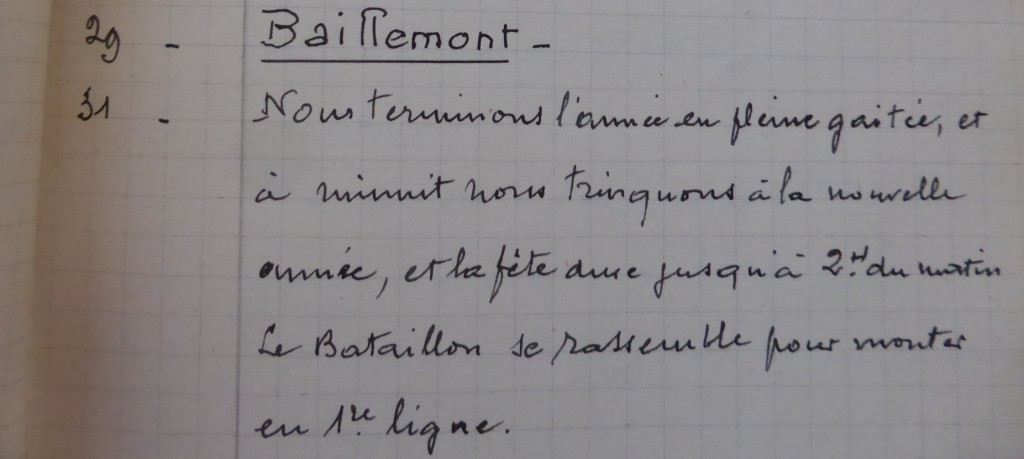 29 - Baillemont -
31 - Nous terminons l'année en pleine gaitée, et
à minuit nous trinquons à la nouvelle
année, et la fête dure jusqu'à 2.H du matin
Le Bataillon se rassemble pour monter
en 1re ligne.